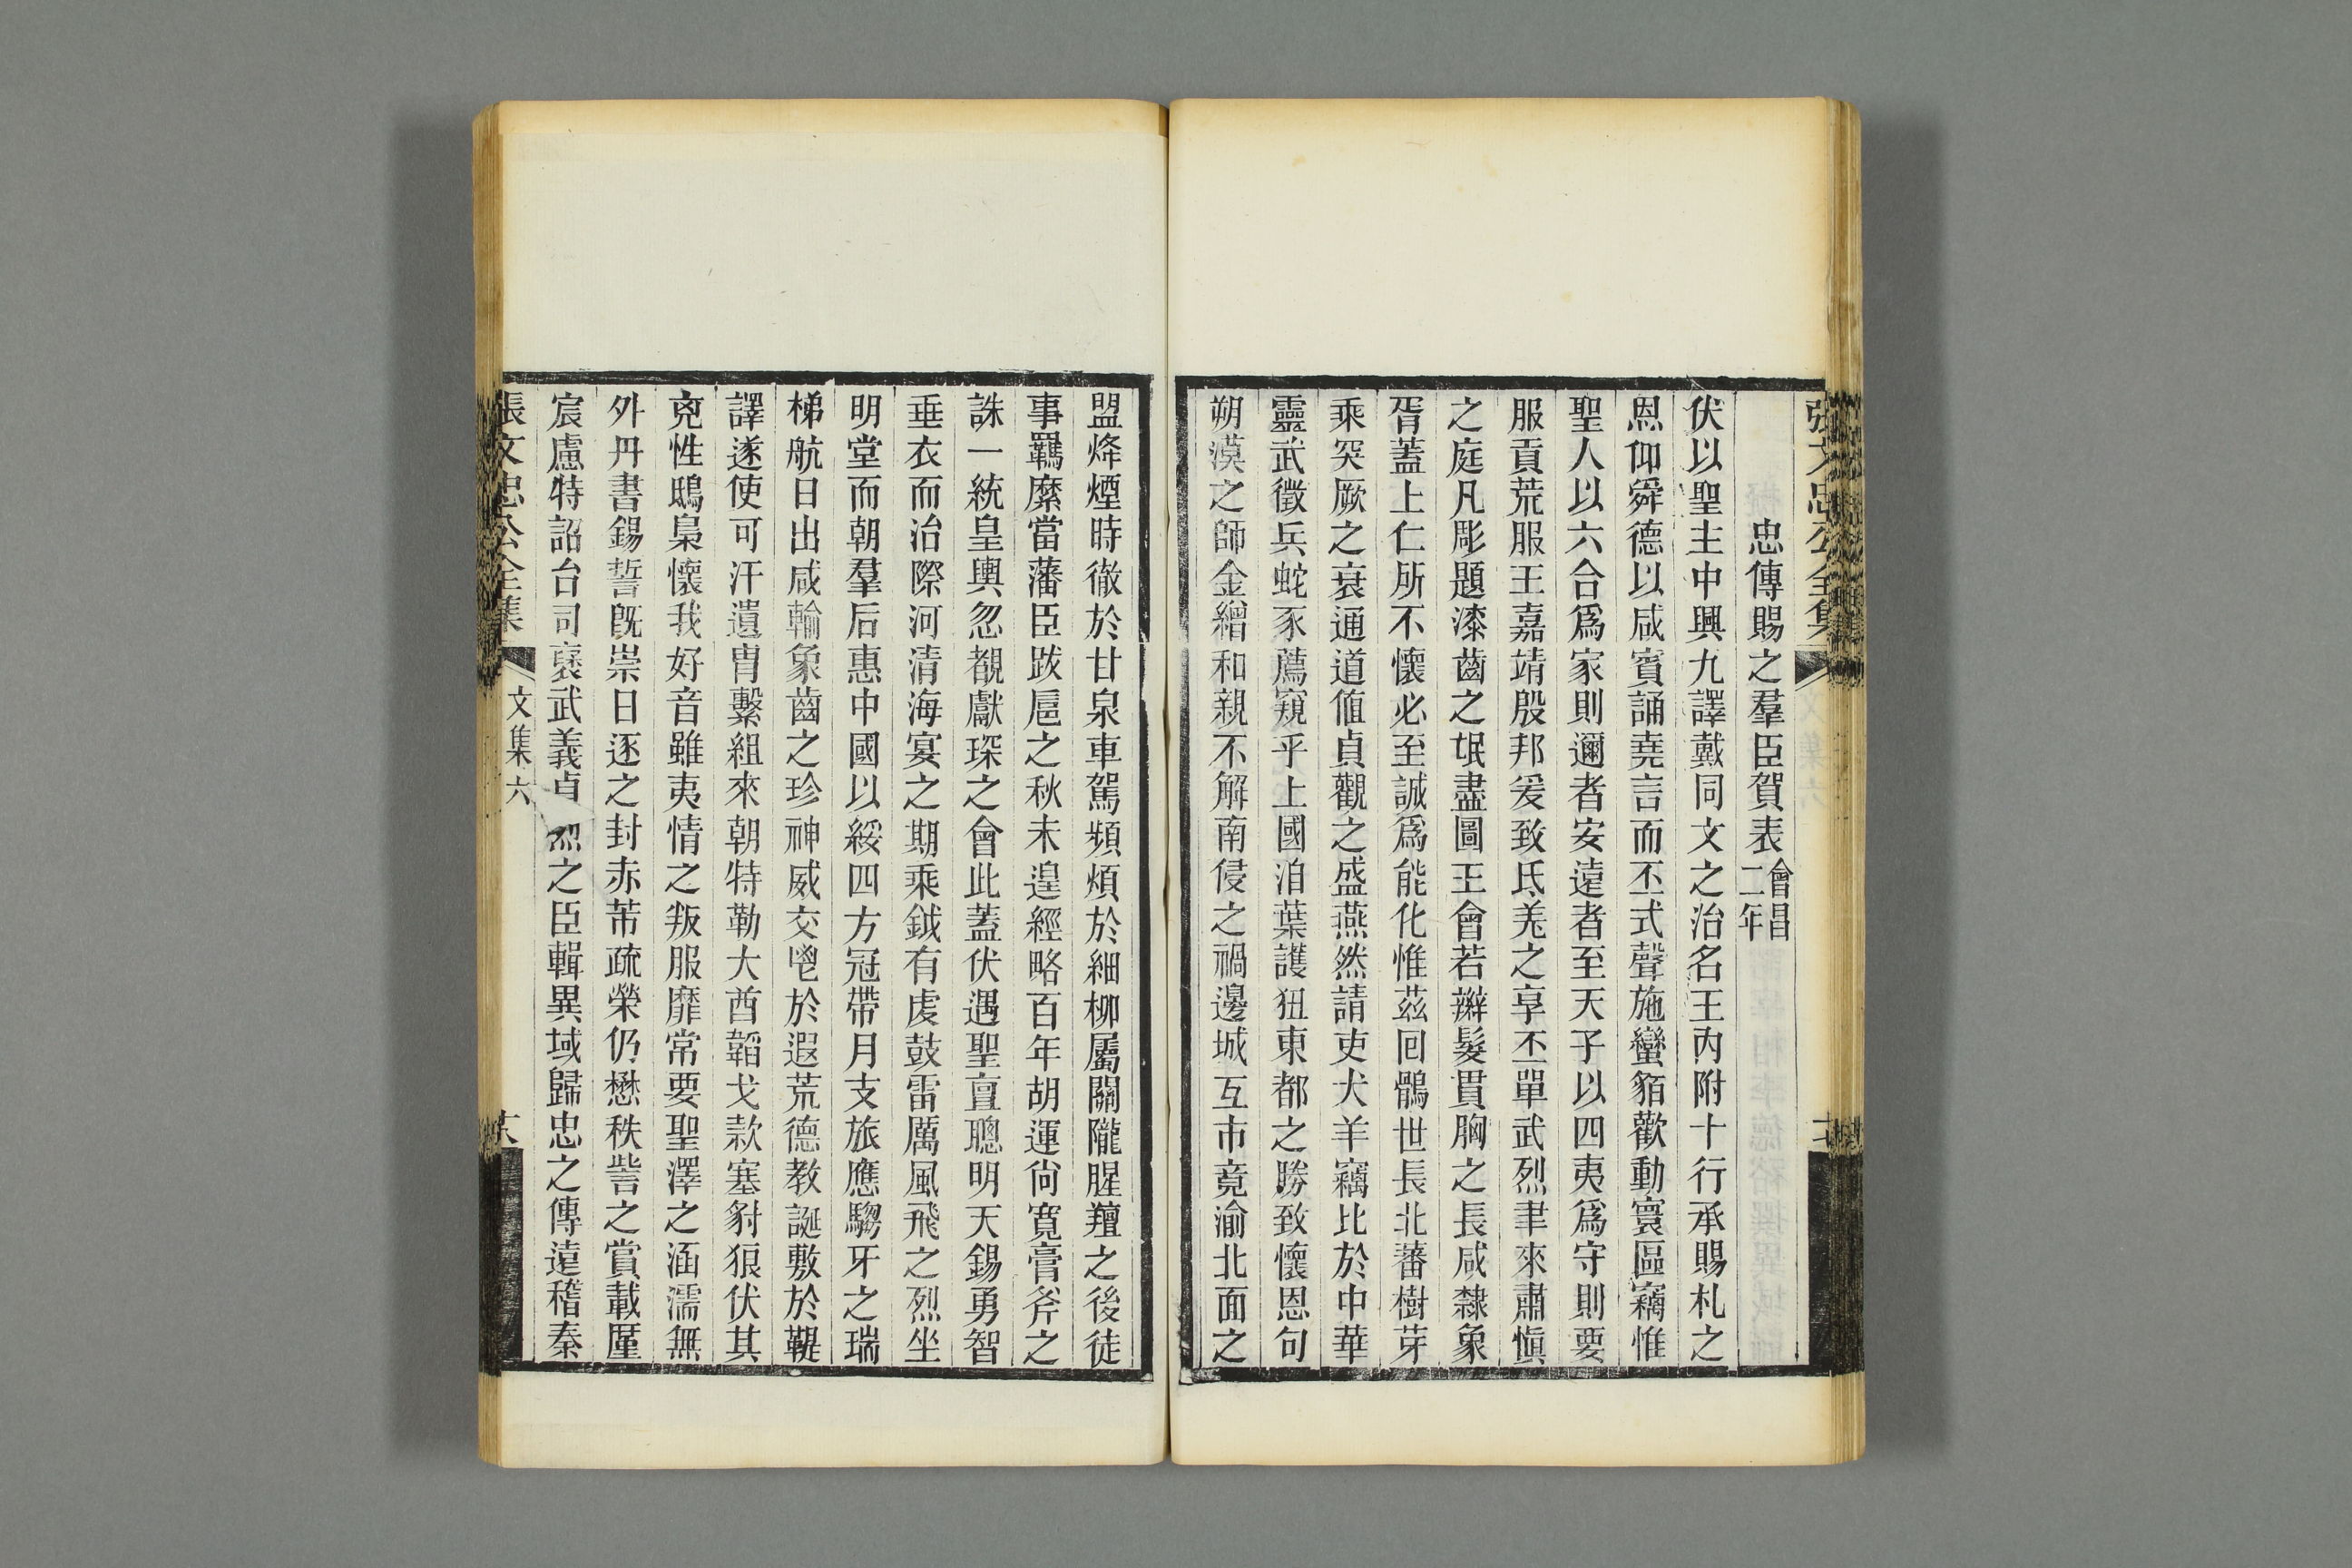 張文忠公全集
文集六
忠傳賜之羣臣賀表會昌二年
伏以聖主中興九譯戴同文之治名王內附十行承賜札之
恩仰舜德以咸賓誦堯言而丕式聲施蠻貊歡動寰區竊惟
聖人以六合爲家則邇者安遠者至天子以四夷爲守則要
服貢荒服王嘉靖殷邦爰致氐羌之享丕單武烈聿來肅愼
之庭凡彫題漆齒之氓盡圖王會若辮髮貫胸之長咸隸象
胥蓋上仁所不懷必至誠爲能化惟茲回鶻世長北蕃樹芽
乘突厥之衰通道値貞觀之盛燕然請吏犬羊竊比於中華
靈武徵兵蛇豕薦窺乎上國洎葉護狃東都之勝致懷恩句
朔漠之師金繒和親不解南侵之禍邊城互市竟渝北面之
盟烽煙時徹於甘泉車駕頻煩於細柳屬關隴腥羶之後徒
事羈縻當藩臣跋扈之秋未遑經略百年胡運尙寬膏斧之
誅一統皇輿忽覩獻琛之會此蓋伏遇聖亶聰明天錫勇智
垂衣而治際河清海宴之期乘鉞有虔鼓雷厲風飛之烈坐
明堂而朝羣后惠中國以綏四方冠帶月支旅應騶牙之瑞
梯航日出咸輸象齒之珍神威交鬯於遐荒德教誕敷於鞮
譯遂使可汗遺冑繫組來朝特勒大酋韜戈款塞豺狼伏其
兇性鴟梟懷我好音雖夷情之叛服靡常要聖澤之涵濡無
外丹書錫誓旣崇日逐之封赤芾疏榮仍懋秩訾之賞載厪
宸慮特詔台司褒武義貞烈之臣輯異域歸忠之傳遠稽秦
張文忠公全集
文集六